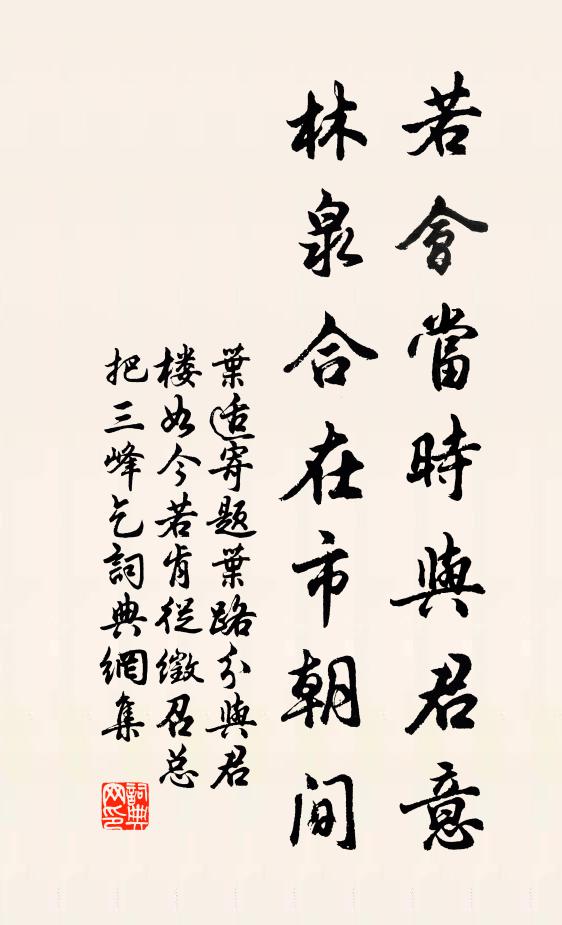 若會當時與君意
林泉合在市朝間
葉适寄題葉路分與君
楼如今若肯従徵召总
把三峰乞詞典網集
詞典網印